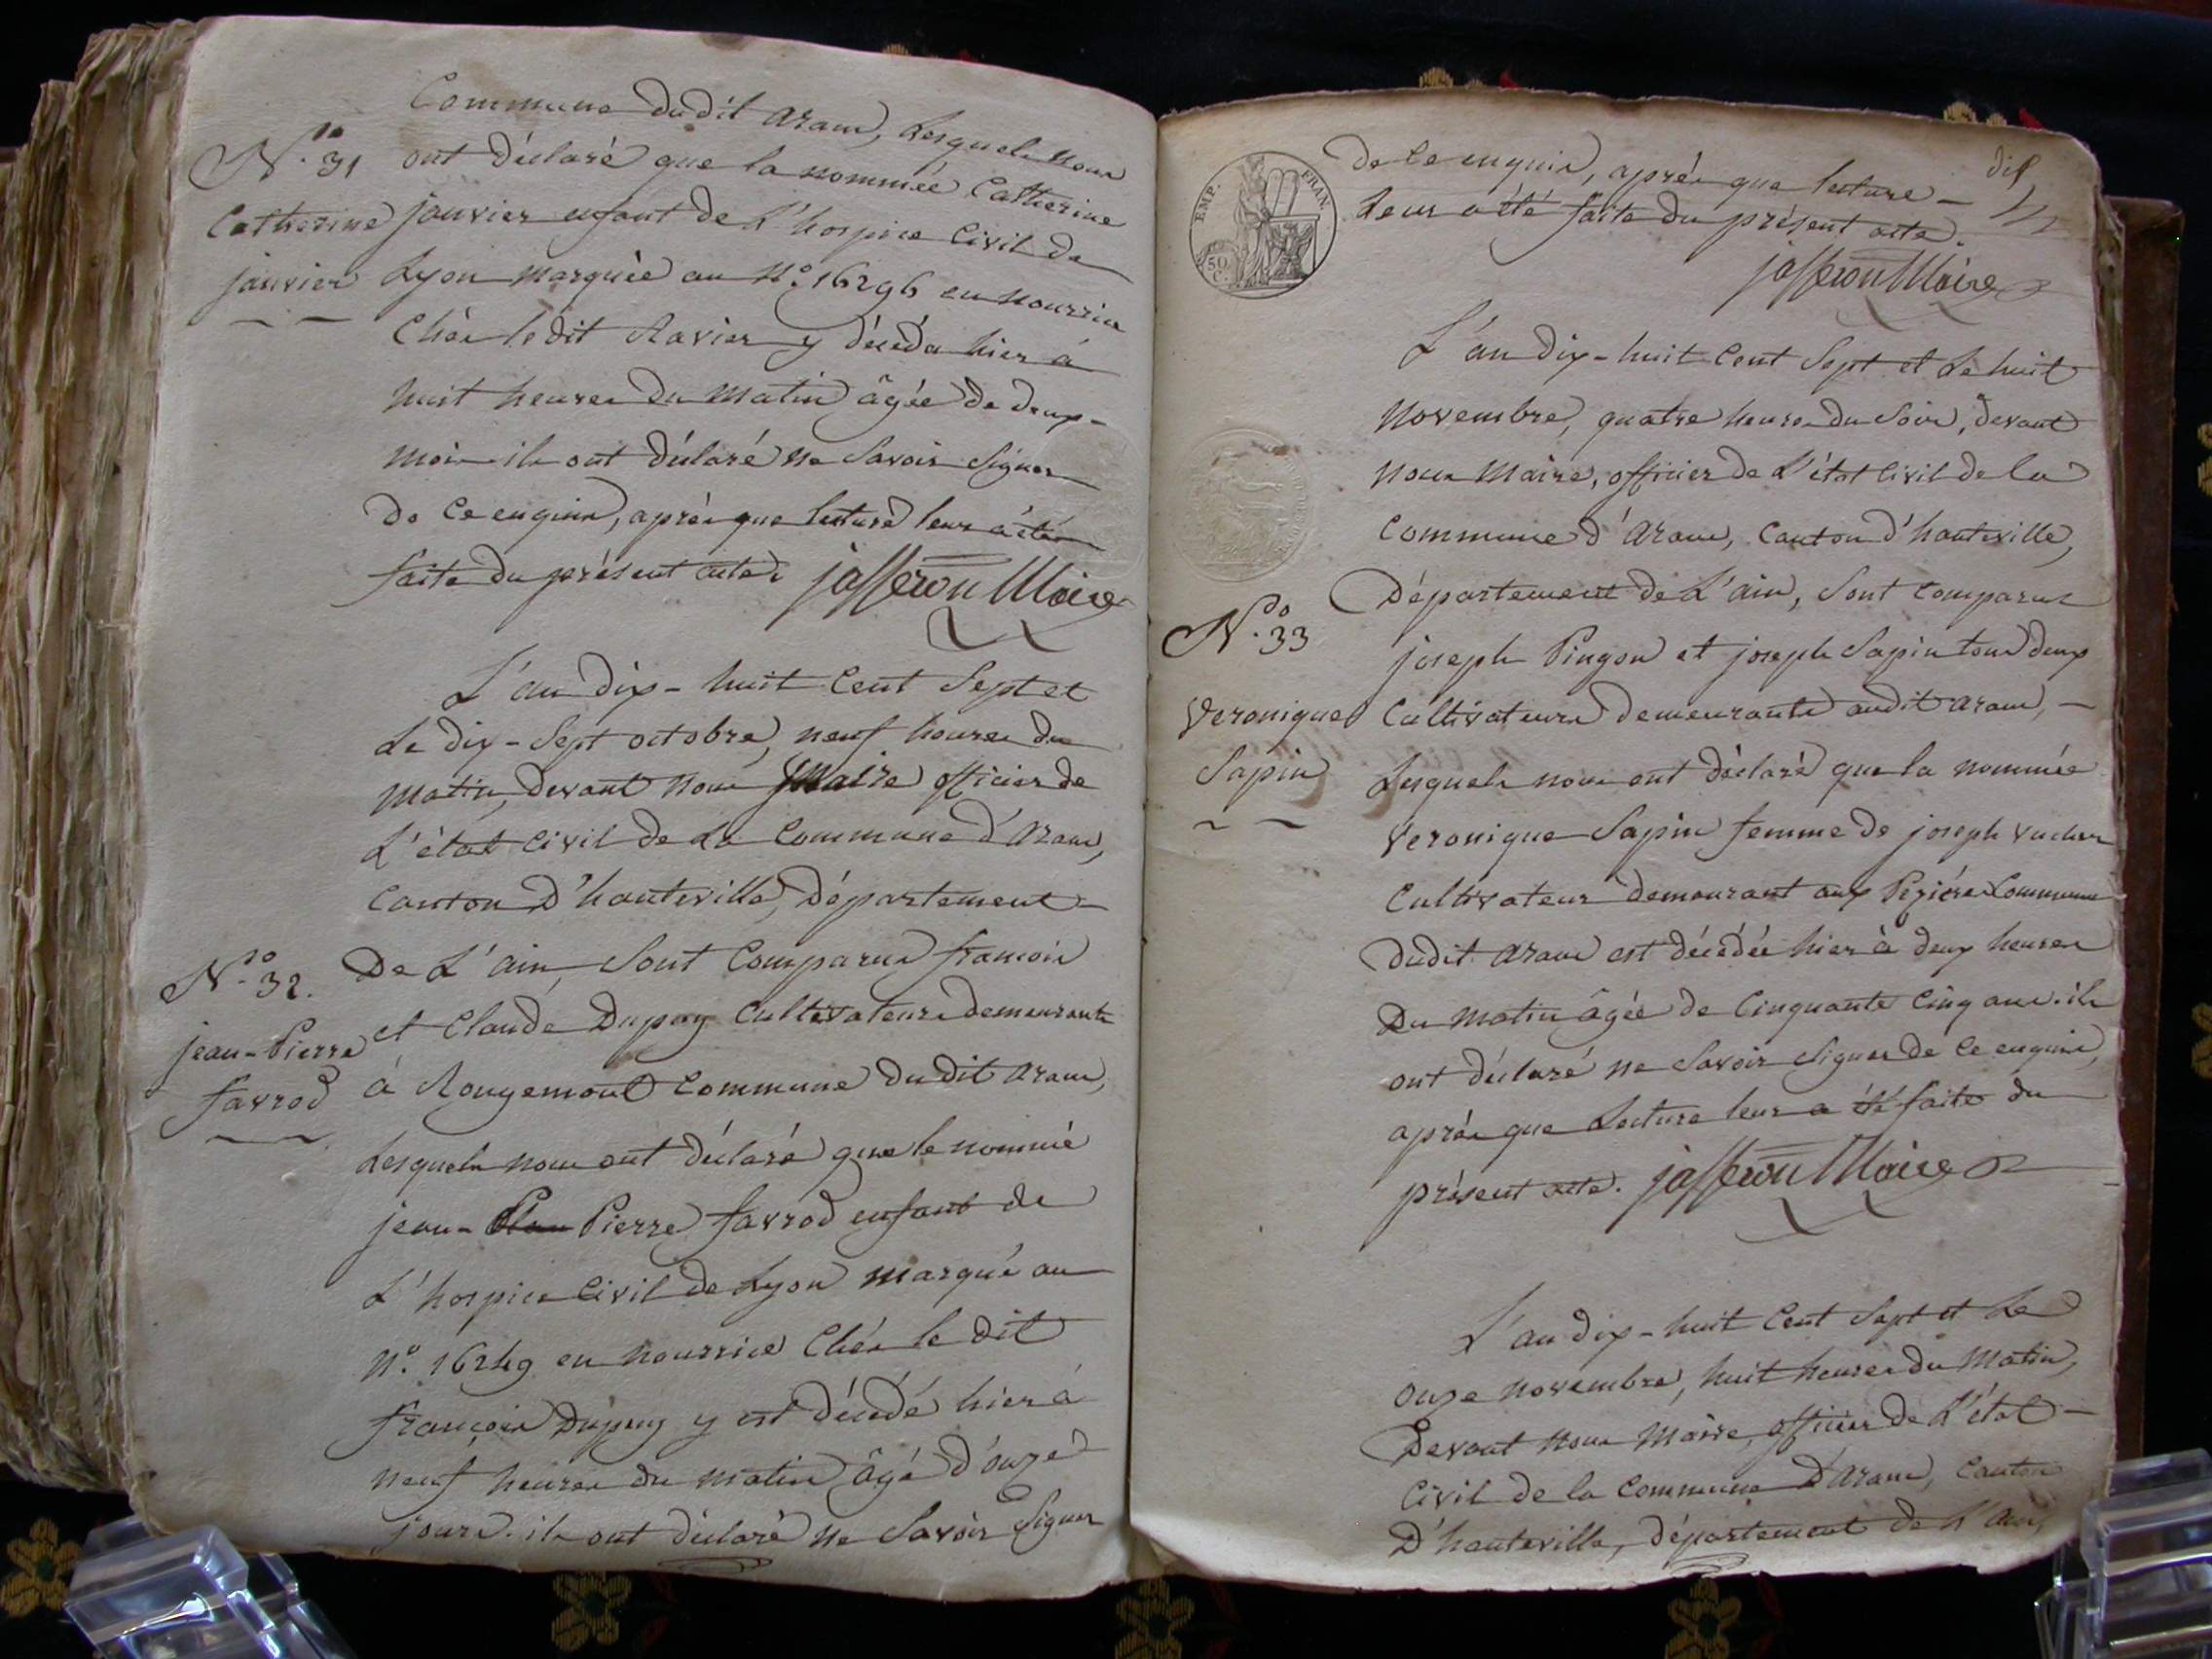 Commune dudit Aranc, Lesquels nous
N.o 31
ont déclaré que la nommée Catherine
Catherine
janvier enfant de L'hospice Civil de
janvier
Lyon marquée au N.o 16296 en nourrice
Chés ledit Ravier y décéda hier à
huit heures du matin âgée de deux
mois ils ont déclaré ne Savoir Signer
de Ce enquis, après que lecture leur a été
faite du présent acte. jasseron Maire
L'an dix-huit Cent Sept et
Le dix-Sept octobre, neuf heures du
matin, devant nous Maire officier de
L'état Civil de La Commune d'Aranc,
Canton D'hauteville, Département
N.o 32.
De L'ain, Sont Comparus francois
et Claude Dupuy Cultivateurs demeurants
jean-Pierre
favrod
à Rougemont Commune dudit Aranc,
Lesquels nous ont déclaré que le nommé
jean- Pierre favrod enfant de
L'hospice Civil de Lyon marqué au
N.o 16249 en nourrice Chés le dit
françois Dupuy y est décédé hier à
neuf heures du matin âgé d'onze
jours. ils ont déclaré ne Savoir Signer
EMP. FRAN.
50 C.
de Ce enquis, après que lecture
Leur a été faite du présent acte.
jasseron Maire
L'an dix-huit Cent Sept et Le huit
Novembre, quatre heures du Soir, devant
nous Maire, officier de L'état Civil de la
Commune d'Aranc, Canton d'hauteville,
Département de L'ain, Sont Comparus
N.o 33
joseph Pingon et joseph Sapin tous deux
Veronique
Sapin
Cultivateurs demeurants audit Aranc,
Lesquels nous ont déclaré que la nommée
Veronique Sapin femme de joseph
Cultivateur demeurant aux Pezières Commune
dudit Aranc est décédée hier à deux heures
Du matin âgée de Cinquante Cinq ans. ils
ont déclaré ne Savoir Signer de Ce enquis,
après que Lecture leur a été faite du
présent acte. jasseron Maire
L'an dix-huit Cent Sept et Le
onze novembre, huit heures du Matin,
Devant nous Maire, officier de L'état
Civil de la Commune D'Aranc, Canton
D'hauteville, département de L'ain,